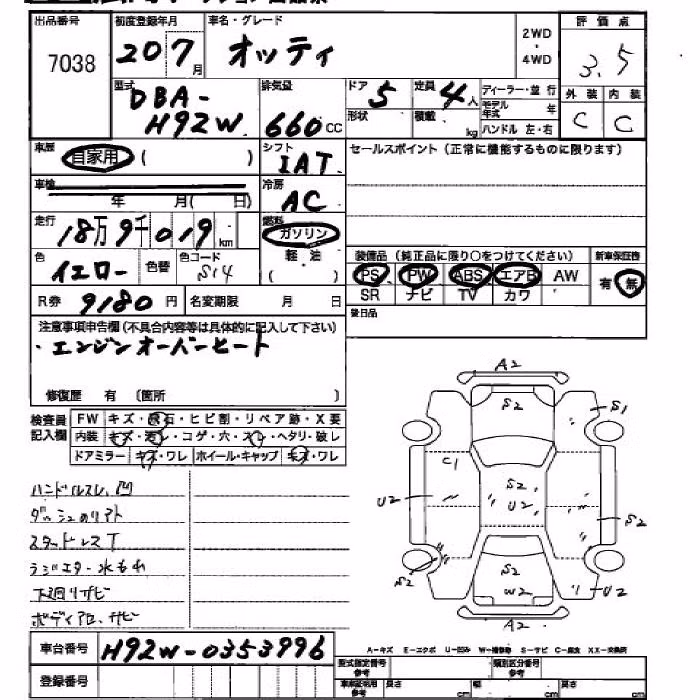 出品番号 初度登録年月 車名・グレード 評価点
7038 20 7月 オッティ 2WD・4WD 3.5
型式 排気量 ドア 定員 ディーラー・並行 外装 内装
DBA-H92W 660cc 5 4人 モデル年式 年 C C
形状 積載 kg ハンドル 左・右
車歴 シフト セールスポイント(正常に機能するものに限ります)
自家用 ( ) IAT
車検 冷房
年 月( 日) AC
走行 燃料
18万9千019km ガソリン
色 色替 色コード 軽油
イエロー S14 ( )
装備品(純正品に限り○をつけてください) 新車保証書
PS PW ABS エアB AW 有・無
SR ナビ TV カワ
R券 9180円 名変期限 月 日 後日品
注意事項申告欄(不具合内容等は具体的に記入して下さい)
・エンジンオーバーヒート
修復歴 有 〔箇所 〕
検査員記入欄 FW キズ・飛石・ヒビ割・リペア跡・X要
内装 キズ・コゲ・穴・スレ・ヘタリ・破レ
ドアミラー キズ・ワレ ホイール・キャップ キズ・ワレ
ハンドルスレ、凹
スタッドレスT
ラジエター水もれ
下廻りサビ
A2
S2
S1
C1
U2
S2
U2
S2
S2
S2
W2
U2
A2
A-キズ E-エクボ U-凹み W-補修跡 S-サビ C-腐食 XX-交換済
車台番号 H92W-0353996
登録番号
型式指定番号 参考 類別区分番号 参考
車庫証明用 参考 長さ cm 幅 cm 高さ cm